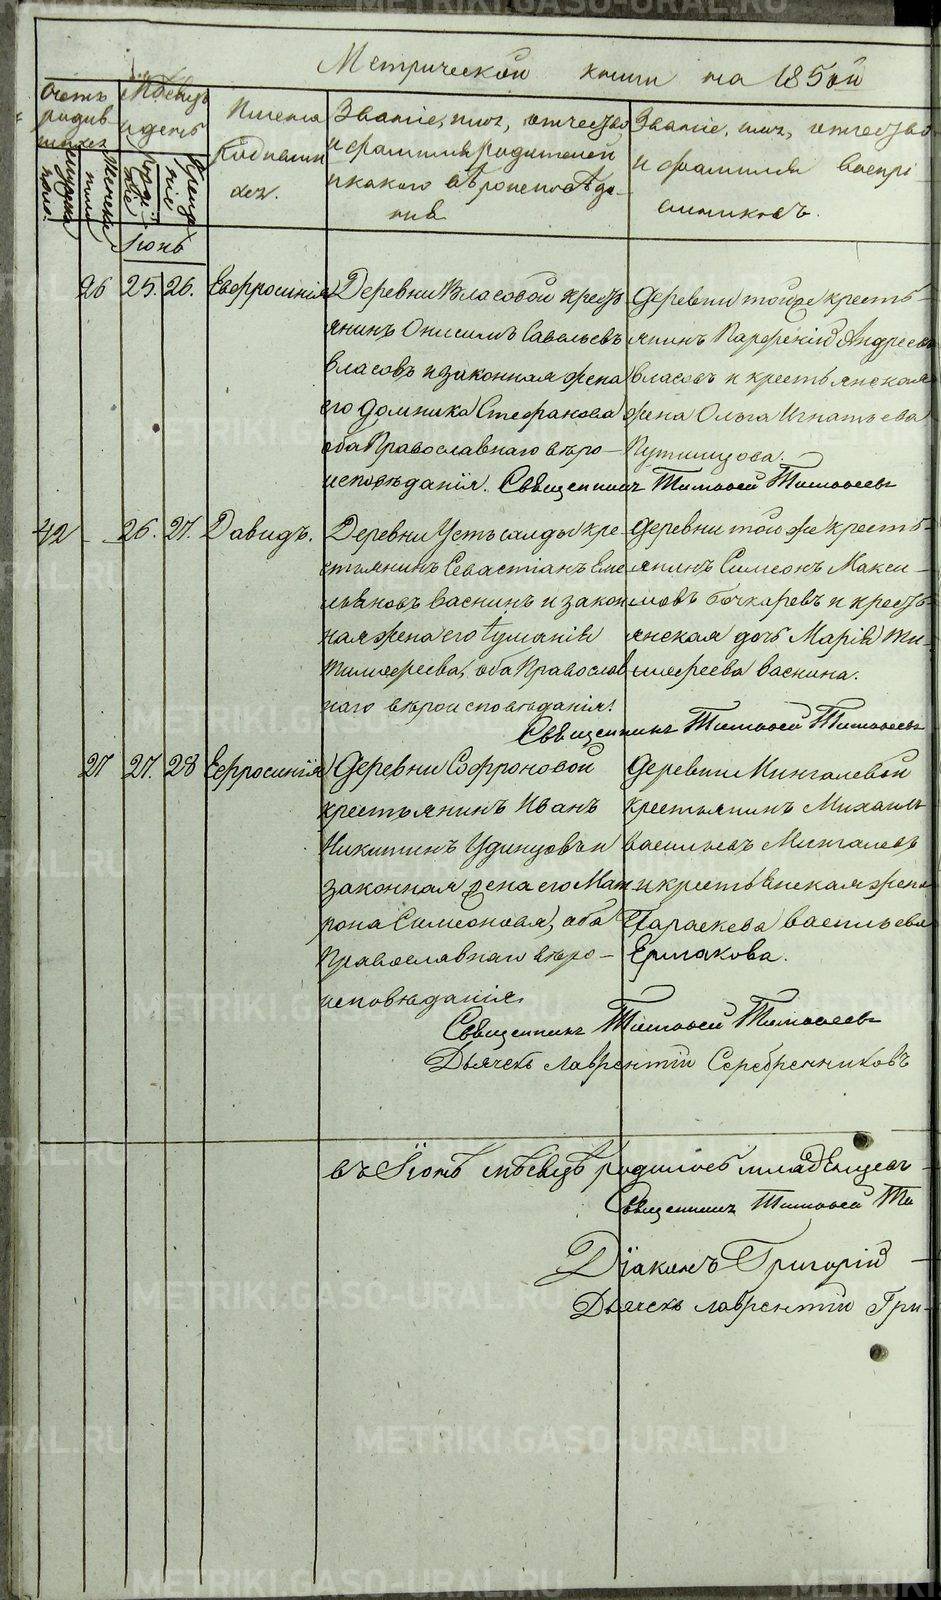 Метрической книги на 1850й
Счетъ родившихся
Мѣсяцъ и день
Имена родившихся.
Званіе, имя, отчество и фамилія родителей и какого вѣроисповѣданія
Званіе, имя, отчество и фамилія воспріемниковъ.
мужеска пола.
женска пола
рожденіе
крещеніе
Іюнь
26 25. 26. Евфросинія
Деревни Власовой кресть
янинъ Онисимъ Савельевъ
Власовъ и законная жена
его Домника Стефанова
оба Православнаго вѣро-
исповѣданія.
Деревни тойже кресть-
янинъ Парфеній Андреевъ
Власовъ и крестьянская
жена Ольга Игнатьева
Путимцова.
Священникъ Тимофей Тимофеевъ
42 26. 27. Давидъ.
Деревни Усть салды кре
стьянинъ Севастіанъ Еме
льяновъ Васнинъ и закон
ная жена его
Тимофеева, оба Православ
наго вѣроисповѣданія.
Деревни той же кресть-
янинъ Симеонъ Макси-
мовъ Бочкаревъ и кресть
янская дочь Марія Ти-
мофеева Васнина.
Священникъ Тимофей Тимофеевъ
27 27. 28 Евфросинія
Деревни Софроновой
крестьянинъ Иванъ
Никитинъ Удинцовъ и
законная жена его Мат
рона Симеонова, оба
Православнаго вѣро-
исповѣданія,
Деревни Мингалевой
крестьянинъ Михаилъ
Васильевъ Мингалевъ
и крестьянская жена
Параскева Васильева
Ермакова.
Священникъ Тимофей Тимофеевъ
Дьячекъ Лаврентій Серебренниковъ
Въ Іюнѣ мѣсяцѣ родилось младенцевъ
Священникъ Тимофей Ти
Діаконъ Григорій
Дьячекъ Лаврентій Гри-
METRIKI.GASO-URAL.RU